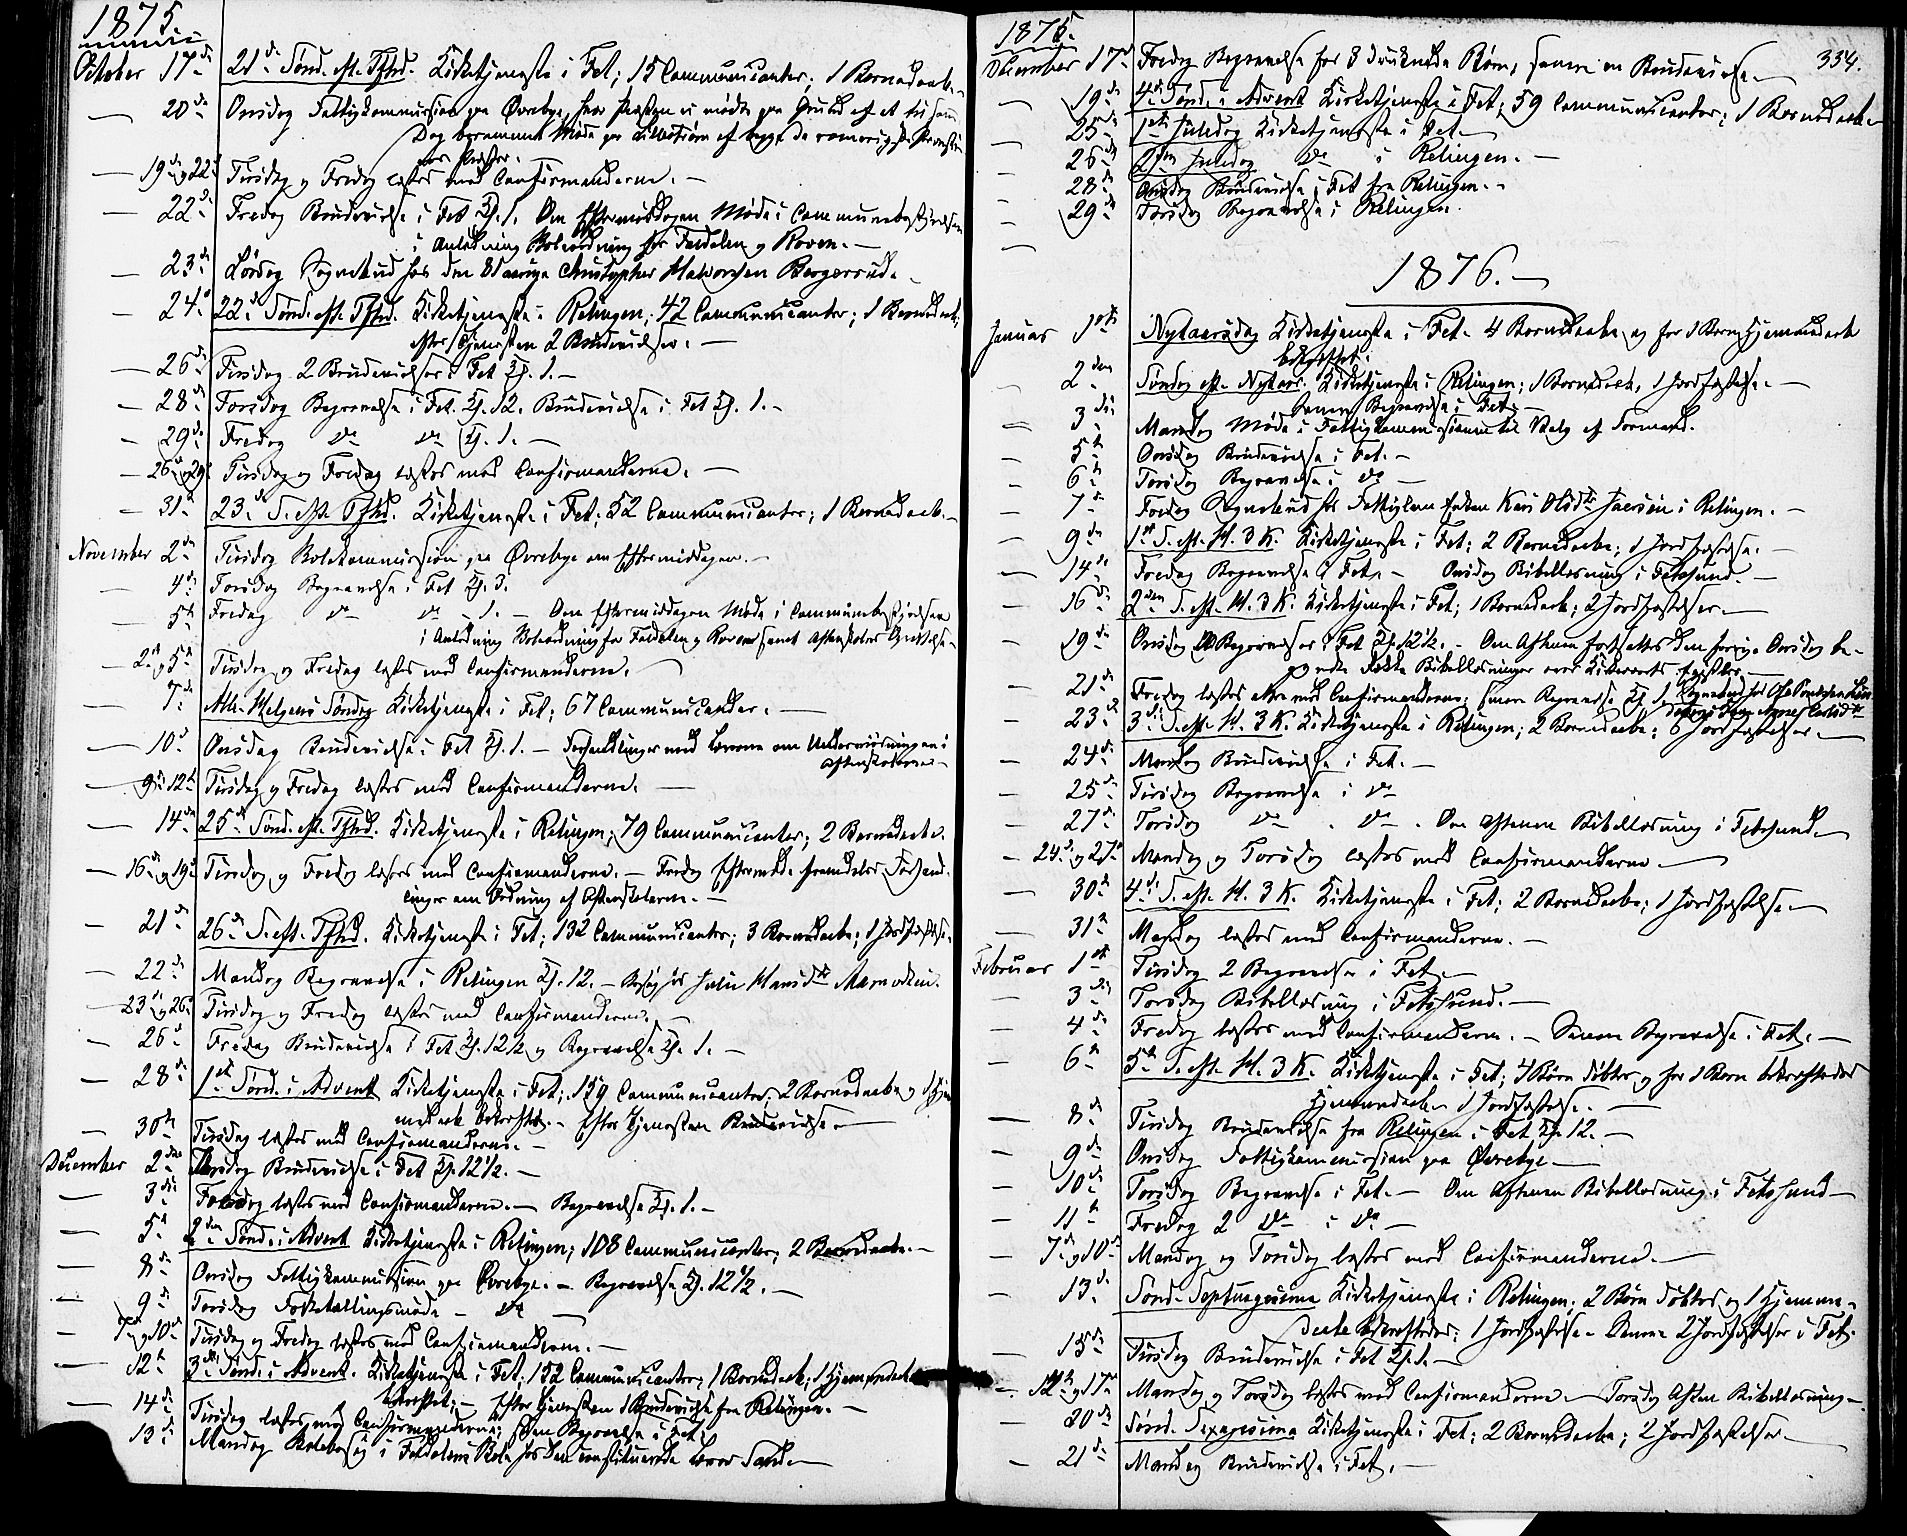 1875
October 17de 21de Sønd. eft. Tfhd. Kirketjeneste i Fet; 15 Communicanter; 1 Barnedaab.
— 20de Onsdag Fattigkommission paa Øvrebye, hvor Præsten ei mødte paa Grund af et til samme
Dag berammet Møde paa Lillestrøm af begge de romerigske Provstiers
Præster.
— 19de og 22de Tirsdag og Fredag læstes med Confirmanderne. —
— 22de Fredag Brudevielse i Fet Kl. 1. Om Eftermiddagen Møde i Communebestyrelsen
i Anledning Veiordning for Faldalen og Roven. —
— 23de Lørdag Sognebud hos den 81aarige Christopher Halvorsen Bergerud.
— 24de 22de Sønd. eft. Tfhd. Kirketjeneste i Relingen; 42 Communicanter; 1 Barnedaab;
efter Tjenesten 2 Brudevielser. —
— 26de Tirsdag 2 Brudevielser i Fet Kl. 1. —
— 28de Torsdag Begravelse i Fet Kl. 12. Brudevielse i Fet Kl. 1. —
— 29de Fredag do do Kl. 1. —
— 26de og 29de Tirsdag og Fredag læstes med Confirmanderne. —
— 31te 23de S. eft. Tfhd. Kirketjeneste i Fet; 52 Communicanter; 1 Barnedaab. —
November 2den Tirsdag Skolekommission paa Øvrebye om Eftermiddagen. —
— 4de Torsdag Begravelse i Fet Kl. 3.
— 5te Fredag do do 1. — Om Eftermiddagen Møde i Communebestyrelsen
i Anledning Veiordning for Faldalen og Roven samt Aftenskoles Oprettelse —
— 2den og 5te Tirsdag og Fredag læstes med Confirmanderne. —
— 7de Alle Helgens Søndag Kirketjeneste i Fet; 67 Communicanter. —
— 10de Onsdag Brudevielse i Fet Kl. 1. — Forhandlinger med Lærerne om Underviisningen i
Aftenskolerne —
— 9de og 12te Tirsdag og Fredag læstes med Confirmanderne. —
— 14de 25de Sønd. eft. Tfhd. Kirketjeneste i Relingen; 79 Communicanter; 2 Barnedaabe.
— 16de og 19de Tirsdag og Fredag læstes med Confirmanderne. — Fredag Eftermidd. fremdeles Forhand-
linger om Ordning af Aftenskolerne. —
— 21de 26de S. eft. Tfhd. Kirketjeneste i Fet; 132 Communicanter; 3 Barnedaabe; 1 Jordfæstelse.
— 22de Mandag Begravelse i Relingen Kl. 12. — Besøg hos Julie Hansdtr
— 23de og 26de Tirsdag og Fredag læstes med Confirmanderne. —
— 26de Fredag Brudevielse i Fet Kl. 12½ og Begravelse Kl. 1. —
— 28de 1ste Sønd. i Advent Kirketjeneste i Fet; 159 Communicanter. 2 Barnedaabe og 1 Hjem-
medaab bekræftet. — Efter Tjenesten Brudevielse. —
— 30te Tirsdag læstes med Confirmanderne. —
December 2den Torsdag Brudevielse i Fet Kl. 12½. —
— 3die Fredag læstes med Confirmanderne. — Begravelse Kl. 1. —
— 5te 2den Sønd. i Advent Kirketjeneste i Relingen; 108 Communicanter; 2 Barnedaabe. —
— 8de Onsdag Fattigkommission paa Øvrebye. — Begravelse Kl. 12½. —
— 9de Torsdag Folketællingsmøde — do —
— 7de og 10de Tirsdag og Fredag læstes med Confirmanderne. —
— 12te 3die Sønd. i Advent. Kirketjeneste i Fet. 152 Communicanter; 1 Barnedaab; 1 Hjemmedaab
bekræftet; — Efter Tjenesten 1 Brudevielse fra Relingen. —
— 14de Tirsdag læstes med Confirmanderne; samme Begravelse i Fet.
13de Mandag Skolebesøg i Faldalens Skole hos den constituerede Lærer Sande —
1875. 334.
December 17de Fredag Begravelse for 3 druknede Børn, senere en Brudevielse. —
— 19de 4de Sønd. i Advent Kirketjeneste i Fet; 59 Communicanter; 1 Barnedaab —
— 25de 1ste Juledag Kirketjeneste i Fet —
— 26de 2den Juledag do i Relingen. —
— 28de Onsdag Brudevielse i Fet fra Relingen. —
— 29de Torsdag Begravelse i Relingen.
1876. —
Januar 1ste Nytaarsdag Kirketjeneste i Fet. 4 Barnedaabe og for 1 Barn Hjemmedaab
bekræftet.
— 2den Søndag eft. Nytaar. Kirketjeneste i Relingen; 1 Barnedaab, 1 Jordfæstelse. —
senere Begravelse i Fet. —
— 3die Mandag Møde i Fattigkommissionen til Valg af Formand.
— 5te Onsdag Brudevielse i Fet. —
— 6te Torsdag Begravelse i do —
— 7de Fredag Sognebud hos Fattiglem Enken Kari Olsdtr i Relingen. —
— 9de 1ste S. eft. H. 3 K. Kirketjeneste i Fet; 2 Barnedaabe; 1 Jordfæstelse. —
— 14de Fredag Begravelse i Fet. — Onsdag Bibellæsning i Fetsund. —
— 16de 2den S. eft. H. 3 K. Kirketjeneste i Fet; 1 Barnedaab; 2 Jordfæstelser. —
— 19de Onsdag Begravelser i Fet Kl. 12½. — Om Aftenen fortsattes den forrige Onsdag be-
gyndte Række Bibellæsninger over Kirkeaarets Epistler.
— 21de Fredag læstes atter med Confirmanderne; senere Begravelse Kl. 1. Sognebud hos
— 23de 3die S. eft. H. 3 K. Kirketjeneste i Relingen; 2 Barnedaabe; 6 Jordfæstelser. —
— 24de Mandag Brudevielse i Fet. —
— 25de Tirsdag Begravelse i do
— 27de Torsdag do . do . Om Aftenen Bibellæsning i Fetsund. —
— 24de og 27de Mandag og Torsdag læstes med Confirmanderne. —
— 30te 4de S. eft. H. 3 K. Kirketjeneste i Fet; 2 Barnedaabe; 1 Jordfæstelse —
— 31te Mandag læstes med Confirmanderne. —
Februar 1ste Tirsdag 2 Begravelse i Fet. —
— 3die Torsdag Bibellæsning i Fetsund. —
— 4de Fredag læstes med Confirmanderne. — Senere Begravelse i Fet. —
— 6te 5te S. eft. H. 3 K. Kirketjeneste i Fet; 4 Børn døbtes og for 1 Barn bekræftedes
Hjemmedaab 1 Jordfæstelse. —
— 8de Tirsdag Brudevielse fra Relingen i Fet Kl. 12. —
— 9de Onsdag Fattigkommission paa Øvrebye —
— 10de Torsdag Begravelse i Fet. — Om Aftenen Bibellæsning i Fetsund —
— 11te Fredag 2 do i do —
— 7de og 10de Mandag og Torsdag læstes med Confirmanderne. —
— 13de Sønd. Septuagesima Kirketjeneste i Relingen; 2 Børn døbtes og 1 Hjemme-
daab bekræftedes; 1 Jordfæstelse. Senere 2 Jordfæstelser i Fet.
— 15de Tirsdag Brudevielse i Fet Kl. 1. —
— 14de og 17de Mandag og Torsdag læstes med Confirmanderne — Torsdag Aften Bibellæsning —
— 20de Sønd. Sexagesima Kirketjeneste i Fet; 2 Barnedaabe; 2 Jordfæstelser —
— 21de Mandag Brudevielse i Fet. —